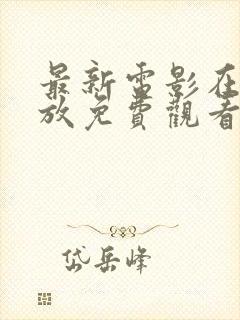 最新電影在
放免費觀看
岱岳峰